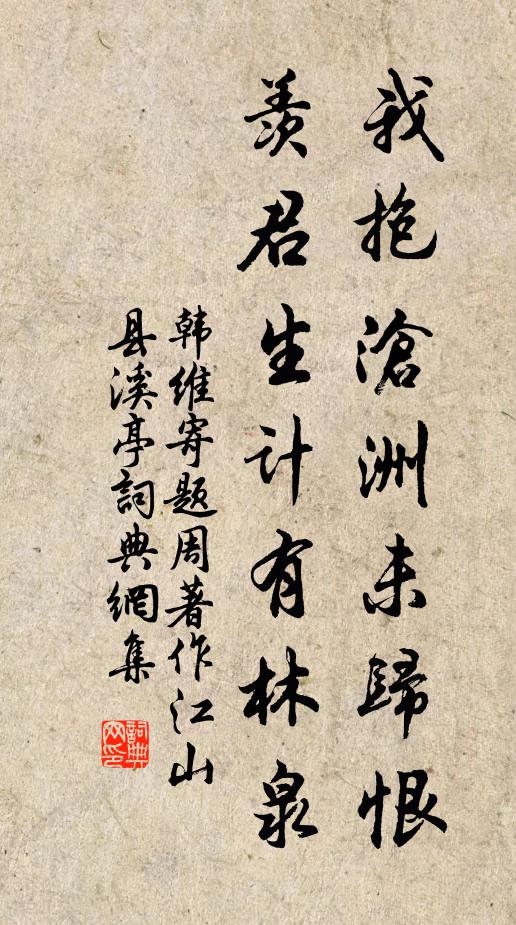 我抱滄洲未歸恨
羨君生计有林泉
韩維寄题周著作江山
县溪亭詞典網集
詞典网印